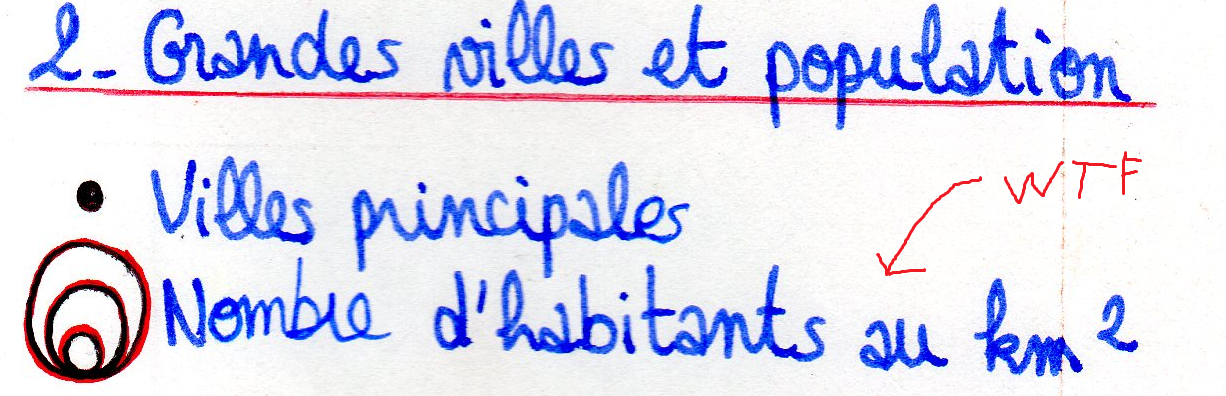 2- Grandes villes et population
Villes principales
WTF
Nombre d'habitants au km²